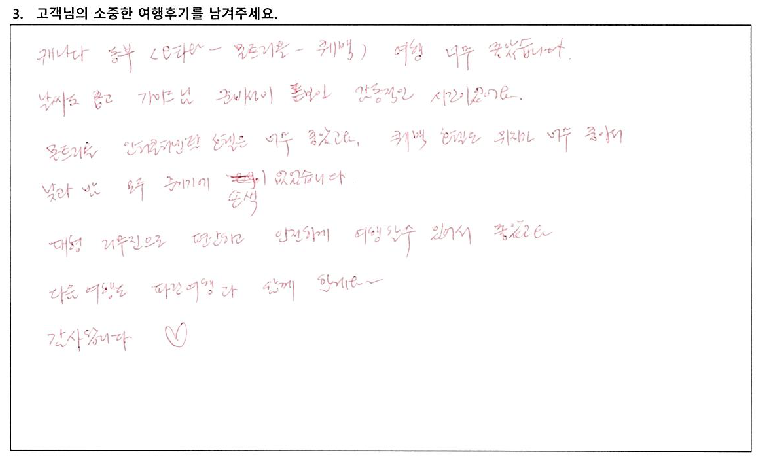 3. 고객님의 소중한 여행후기를 남겨주세요.
캐나다 동부 (오타와 - 몬트리올 - 퀘백) 여행 너무 좋았습니다.
날씨도 좋고 가이드님 준비성이 돋보인 감동적인 시간이었어요.
몬트리올 인터콘티넨탈 호텔은 너무 좋았고요, 퀘백 호텔도 위치가 너무 좋아서
낮과 밤 모두 즐기기에 손색이 없었습니다
대형 리무진으로 편안하고 안전하게 여행할수 있어서 좋았고요
다음 여행도 파란여행과 함께 할게요~
감사합니다 ♡